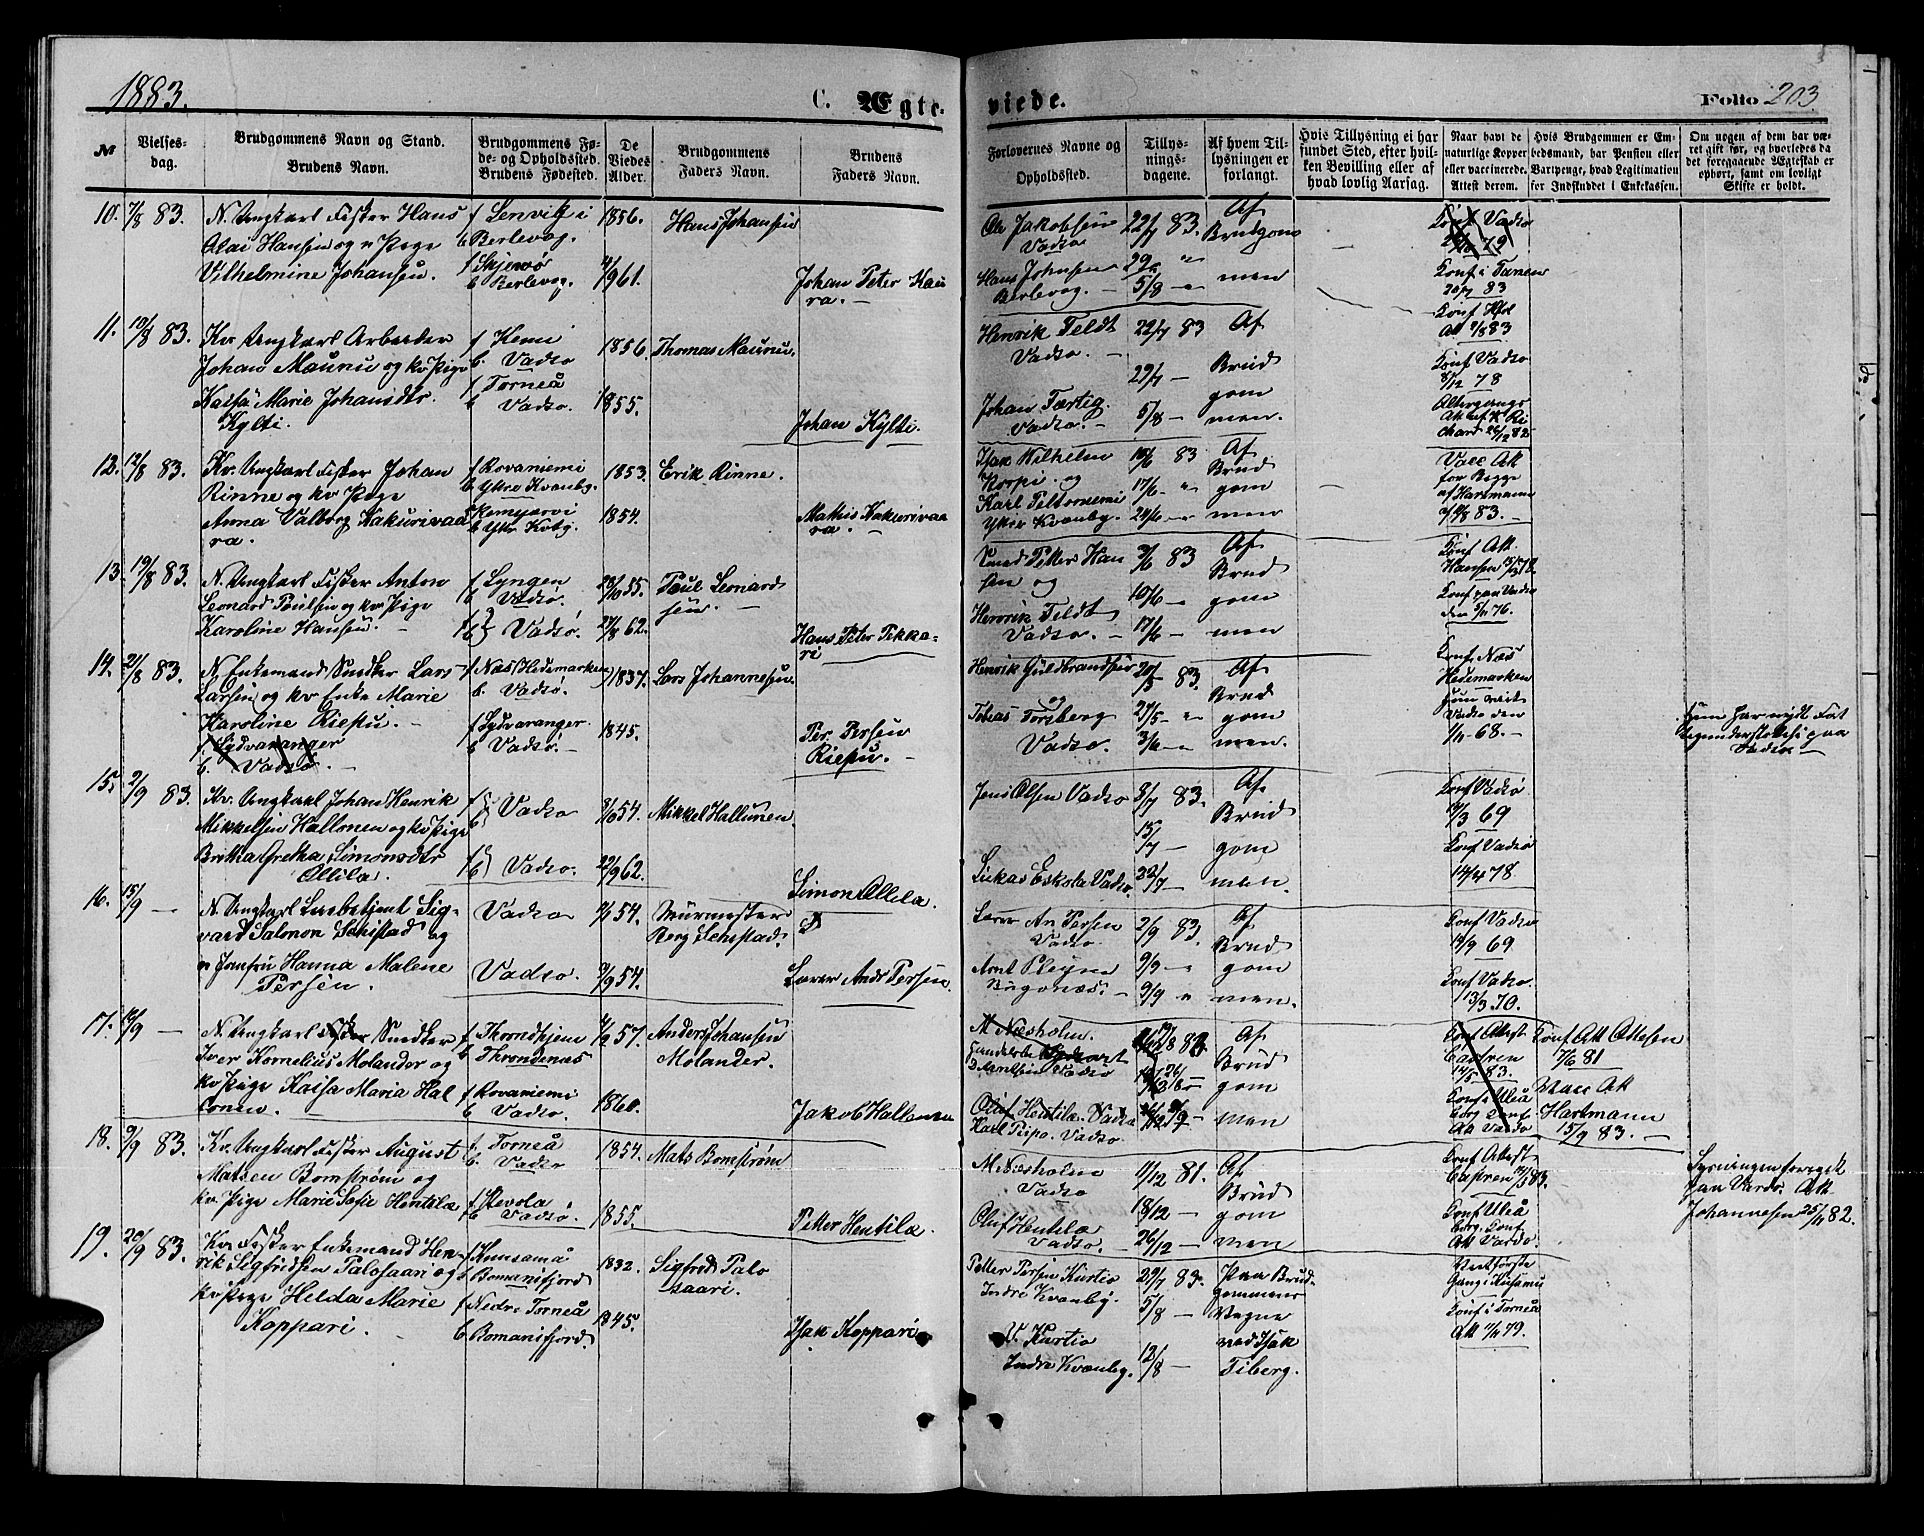 1883.
C. Ægte-
viede.
Folio 203
№
Vielses-
dag.
Brudgommens Navn og Stand.
Brudens Navn.
Brudgommens Fø-
de- og Opholdssted.
Brudens Fødested.
De
Viedes
Alder.
Brudgommens
Faders Navn.
Brudens
Faders Navn.
Forlovernes Navne og
Opholdssted.
Tillys-
nings-
dagene.
Af hvem Til-
lysningen er
forlangt.
Hvis Tillysning ei har
fundet Sted, efter hvil-
ken Bevilling eller af
hvad lovlig Aarsag.
Naar havt de
naturlige Kopper
eller vaccinerede.
Attest derom.
Hvis Brudgommen er Em-
bedsmand, har Pension eller
Vartpenge, hvad Legitimation
for Indskudet i Enkekassen.
Om nogen af dem har væ-
ret gift før, og hvorledes da
det foregaaende Ægteskab er
ophørt, samt om lovligt
Skifte er holdt.
10. 7/8 83.
N. Ungkarl Fisker Hans
Olai Hansen og n Pige
Vilhelmine Johansen.
f Lenvik i
b Berlevog.
f Skjervø
b Berlevog.
1856.
4/9 61.
Hans Johansen
Johan Peter Kau
ra.
Ole Jakobsen
Vadsø
Hans Johnsen
Berlevog.
22/7 83.
29/7 "
5/8 "
Af
Brudgom
men
Konf Vadsø
79
Konf i Tanen
20/7 83
11. 10/8 83.
Kv. Ungkarl Arbeider
Johan Maunu og kv Pige
Kaisa Marie Johansdtr.
Kylti.
f Kemi
b. Vadsø
f. Torneå
b Vadsø.
1856.
1855.
Thomas Maunu.
Johan Kylti.
Henrik Feldt
Vadsø.
Johan Færtig.
Vadsø.
22/7 83
29/7 —
5/8 —
Af
Brud
gom
men.
Konf Vadsø
8/12 78
Altergangs
Att af K. Ri
chard 26/12 82
12. 12/8 83.
Kv. Ungkarl Fisker Johan
Rinne og kv Pige
Anna Valborg Kakurivaa
ra.
f Rovaniemi
b Ytre Kvænbg.
f Kemijarvi
b Ytr Kvbg.
1853.
1854.
Erik Rinne.
Mathis Kakurivaa
ra.
Isak Wilhelm
Korpi og
Karl Peltoniemi
Ytre Kvænby.
10/6 83
17/6 "
24/6 "
Af
Brud
gom
men
Vacc Att
for Begge
af Hartmann
83.
13. 19/8 83.
N. Ungkarl Fisker Anton
Leonard Paulsen og kv Pige
Karoline Hansen.
f Lyngen
b Vadsø.
f b } Vadsø.
28/10 55.
27/8 62.
Paul Leonard
sen.
Hans Peter Pekka-
ri
Knud Petter Han
sen og
Henrik Feldt
Vadsø.
3/6 83
10/6 —
17/6 —
Af
Brud
gom
men
Konf Att.
Hansen
Konf paa Vadsø
den 5/11 76.
14. 21/8 83.
N. Enkemand Snedker Lars
Larsen og kv Enke Marie
Karoline Riepu.
f. Sydvaranger
b. Vadsø.
f Næs Hedemarken
b. Vadsø.
f Sydvaranger.
b Vadsø.
1837.
1845.
Lars Johannesen.
Per. Persen
Riepu.
Henrik Guldbrandsen
og
Tobias Forsberg
Vadsø.
20/5 83.
27/5 "
3/6 "
Af
Brud
gom
men.
Konf Næs
Hedemarken
hun
Vadsø den
68.
Hun har nydt Fat
tigunderstøttelse paa
Vadsø
15. 2/9 83.
Kv. Ungkarl Johan Henrik
Mikkelsen Hallonen og kv Pige
Britha Gretha Simonsdtr
Ollila.
f b } Vadsø
f b } Vadsø.
8/10 54.
22/9 62.
Mikkel Hallunen.
Simon Ollila.
Jens Olsen Vadsø
Lukas Eskola Vadsø.
8/7 83.
15/7 —
22/7 —
Af
Brud
gom
men.
Konf Vadsø
69
Konf Vadsø
14/4 78
16. 15/9 —
N. Ungkarl Losbetjent Sig-
vard Salomon Sehstad og
n Jomfru Hanna Malene
Persen.
Vadsø
Vadsø.
54.
8/9 54.
Murmester
Berg Sehstad.
Lærer Ands Persen.
Lærer An Persen
Vadsø
Arnt Pleym
Bugønæs.
2/9 83.
9/9 "
9/9 "
Af
Brud
gom
men.
Konf Vadsø
19/9 69
Konf Vadsø.
13/3 70.
17. 16/9 —
N. Ungkarl Fisker Snedker
Iver Kornelius Molander og
kv Pige Kaisa Maria Hal
lonen.
f Throndhjem
b Throndenæs
f Rovaniemi
b Vadsø.
57.
1860.
Anders Johansen
Molander.
Jakob Hallonen
M Næsholm.
Vadsø
Oluf Hentila. Vadsø
Karl Piipo. Vadsø
Af
Brud
gom
men
Konf Attest
Castren
14/5 83.
Konf Uleå
borg Konf
Att Vadsø
Konf Att Ottesen
7/6 81
Vacc Att
Hartmann
15/9 83.
18. 9/9 83.
Kv. Ungkarl Fisker August
Matsen Bomstrøm og
kv. Pige Marie Sofie Hentila
f. Torneå
b. Vadsø
f
b Vadsø.
1854.
1855.
Mats Bomstrøm
Petter Hentila.
M Næsholm
Vadsø
Oluf Hentila
Vadsø.
11/12 81.
18/12 —
26/12 —
Af
Brud
gom
men
Konf Attest
Castren 14/5 83.
Konf Uleå
borg. Konf
Att Vardø.
Lysningen foregik
paa Vardø. Att.
Johannesen 25/4 82.
19. 20/9 83.
Kv. Fisker Enkemand Hen-
rik Sigfredsen Palosaari og
kv Pige Helda Marie
Koppari.
f Kuusamå
b Bomanisfjord
f Nedre Torneå
b Bomanisfjord.
1832.
1845.
Sigfred Palo
saari.
Isak Koppari
Petter Persen Kurtio
Indre Kvænby.
V. Kurtio
Indre Kvænby.
29/7 83.
5/8 —
12/8 —
Paa Brud-
gommens
Vegne
ved Isak
Fiberg.
Nentførste
Gang i Kusamo
Konf i Torneå
Att 79.